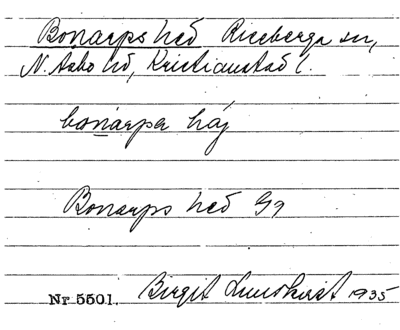 Bonarps hed Riseberga sn,
N. Åsbo hd, Kristianstad l.
bonarpa háj
Bonarps hed Gg
Nr 5501. Birgit Lundkvist 1935